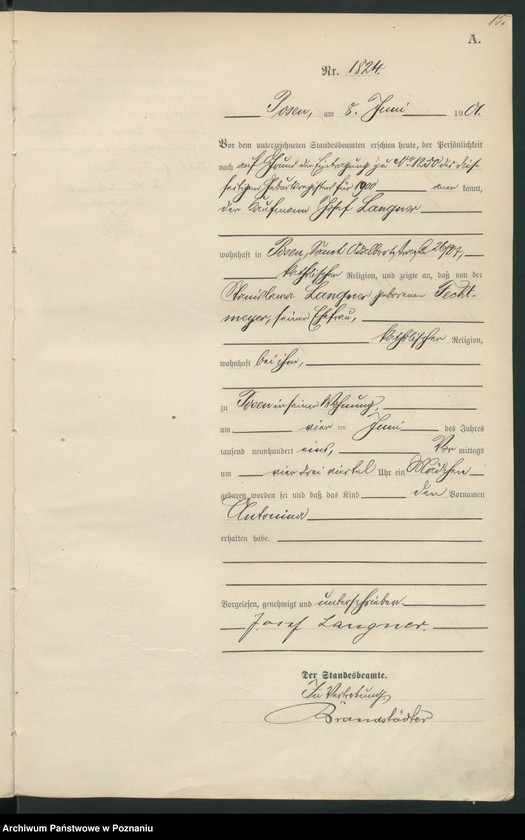 15.
A.
Nr. 1824.
Posen, am 8. Juni 1901.
Vor dem unterzeichneten Standesbeamten erschien heute, der Persönlichkeit
nach auf Grund der Eintragung zu No 1250 des dies-
seitigen Geburtsregisters für 1900 aner kannt,
der Kaufmann Josef Langner
wohnhaft in Posen, Sanct Adalbertstraße 26/27,
katholischer Religion, und zeigte an, daß von der
Stanislawa Langner geborenen Techt-
meyer, seiner Ehefrau,
katholischer Religion,
wohnhaft bei ihm,
zu Posen in seiner Wohnung,
am vier ten Juni des Jahres
tausend neunhundert eins, Vor mittags
um vier drei viertel Uhr ein Mädchen
geboren worden sei und daß das Kind den Vornamen
Antonina
erhalten habe.
Vorgelesen, genehmigt und unterschrieben
Josef Langner.
Der Standesbeamte.
In Vertretung
Brandstädter
Archiwum Państwowe w Poznaniu